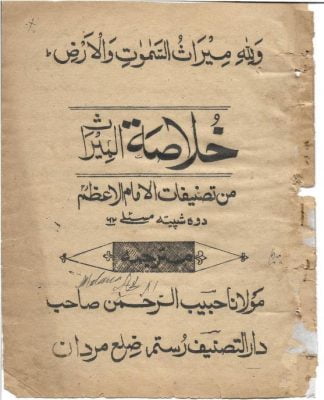 وَلِلّٰهِ مِيْرَاثُ السَّمٰوٰتِ وَالْاَرْضِ ؕ
خُلاصَة الميراث
من تصنیفات الامام الاعظم
دوہ شپیتہ مسئلے
مترجمہ
مولانا حبیب الرحمٰن صاحب
دار التصنیف رستم ضلع مردان